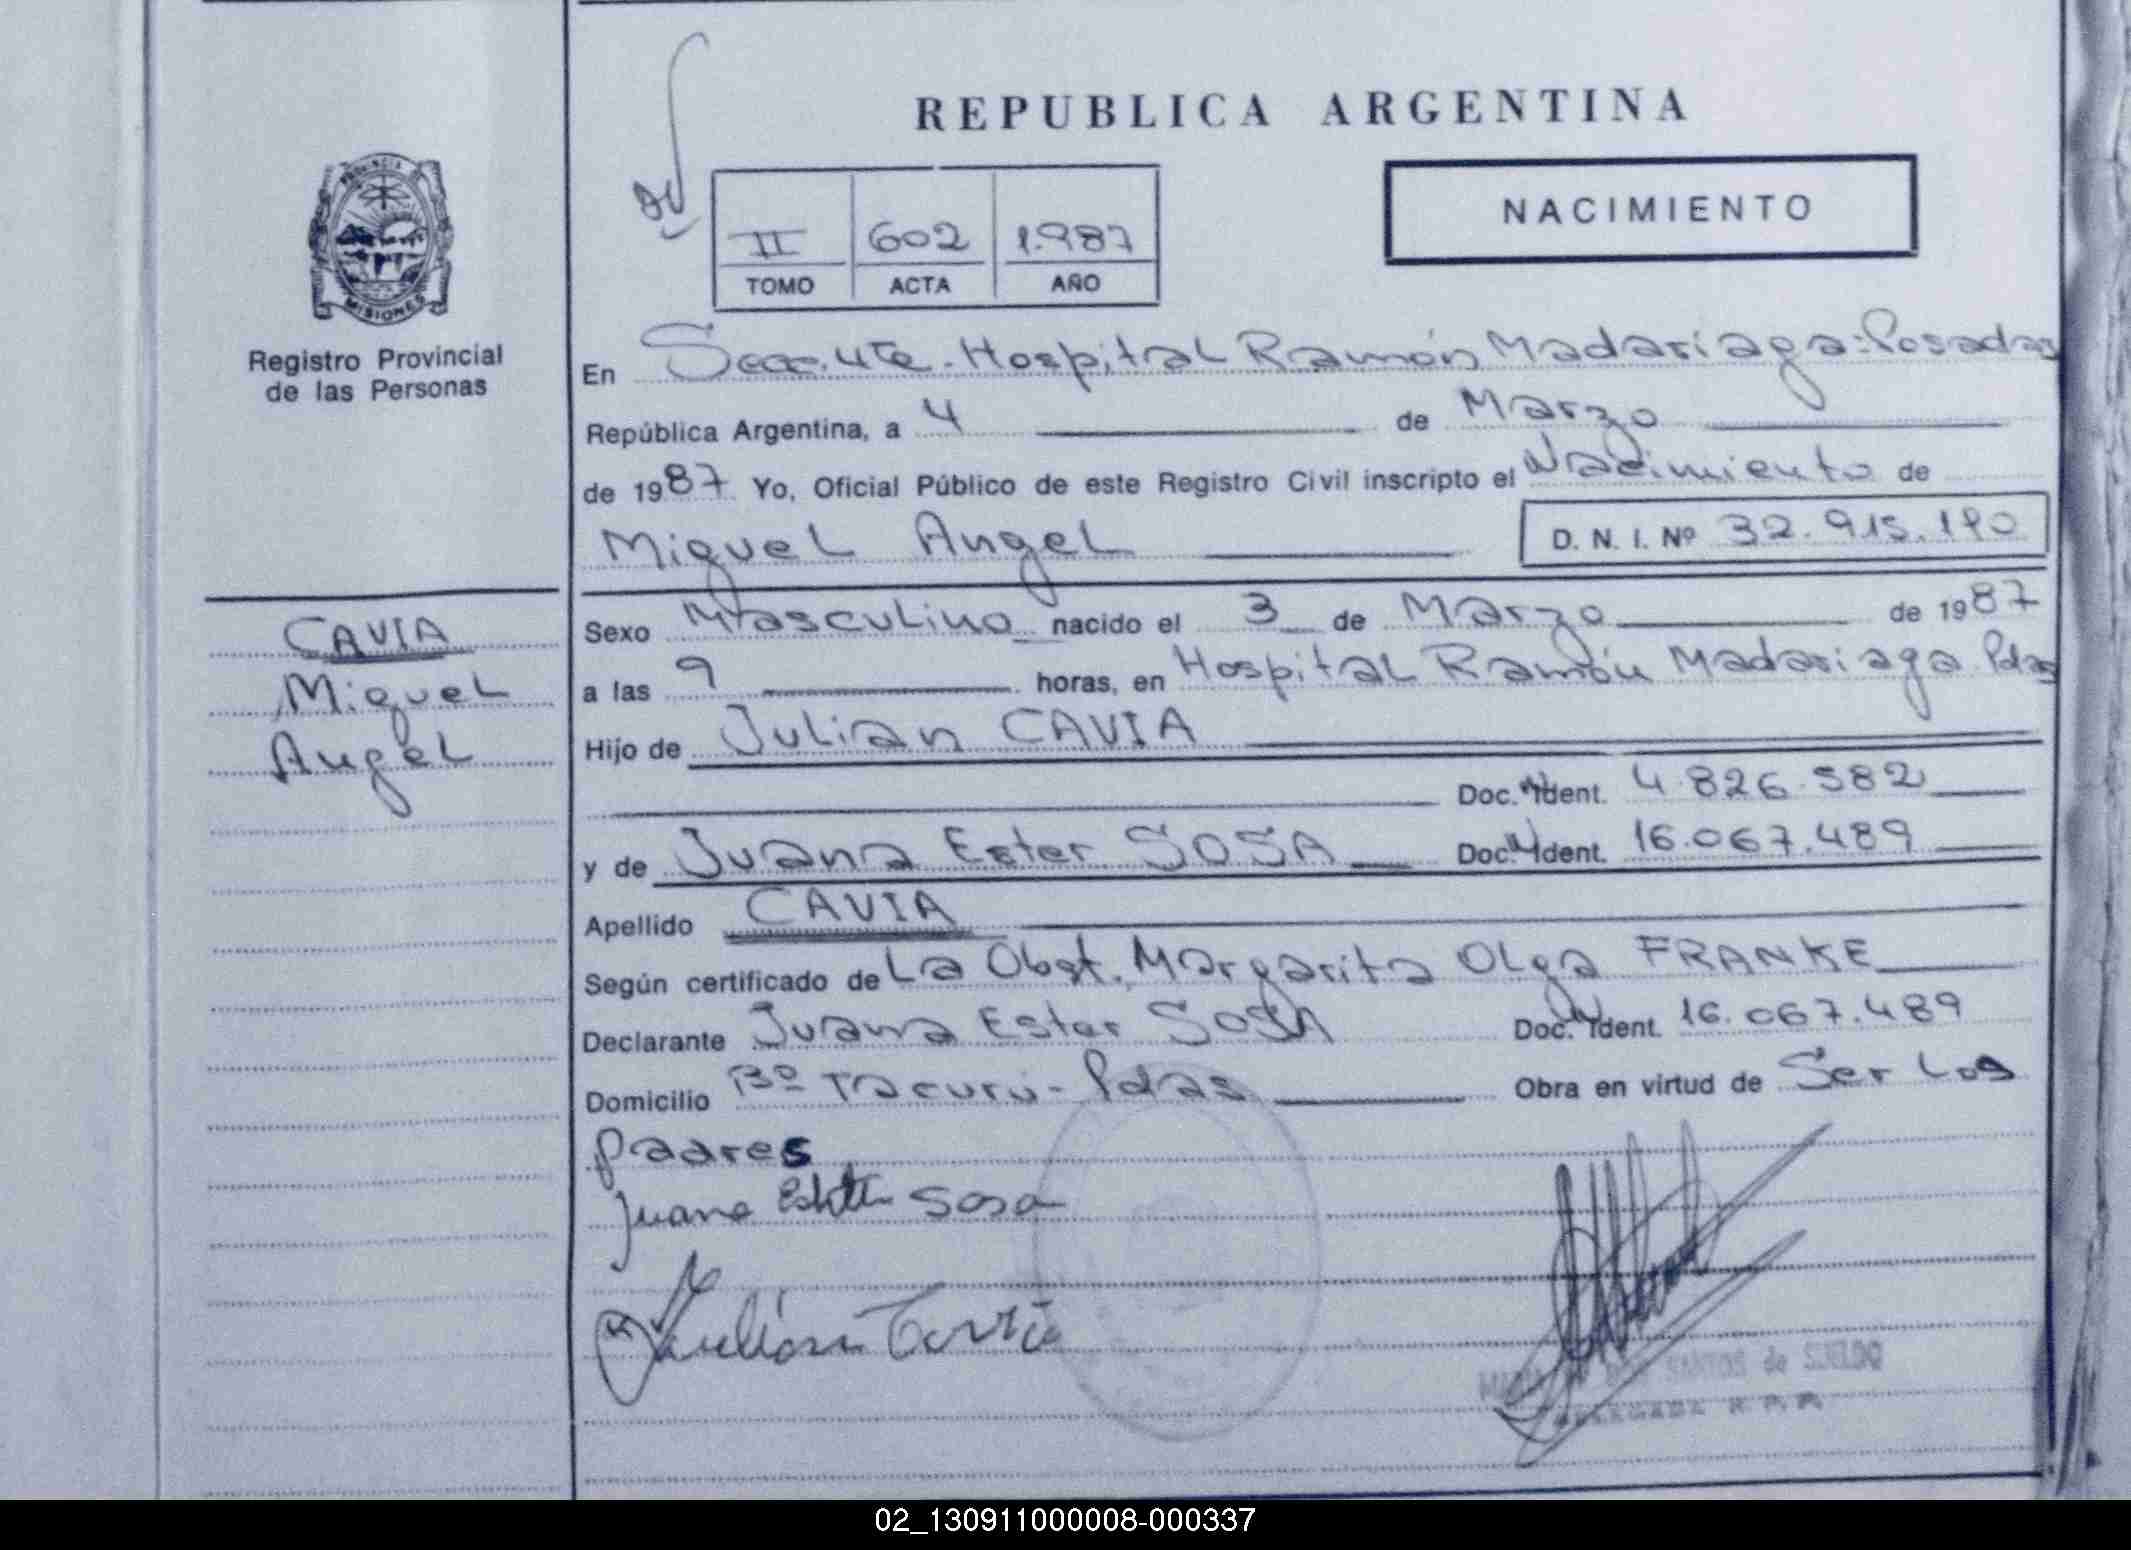 REPUBLICA ARGENTINA
NACIMIENTO
II 602 1.987
TOMO ACTA AÑO
PROVINCIA DE
MISIONES
Registro Provincial
de las Personas
CAVIA
Miguel
Angel
En Secc. 4ta. Hospital Ramón Madariaga: Posadas
República Argentina, a 4 de Marzo
de 1987 Yo, Oficial Público de este Registro Civil inscripto el Nacimiento de
Miguel Angel D. N. I. Nº 32.915.190
Sexo Masculino nacido el 3 de Marzo de 1987
a las 9 horas, en Hospital Ramón Madariaga Pdas
Hijo de Julian CAVIA
Doc. Ident. 4.826.582
y de Juana Ester SOSA Doc. Ident. 16.067.489
Apellido CAVIA
Según certificado de La Obst. Margarita Olga FRANKE
Declarante Juana Ester SOSA Doc. Ident. 16.067.489
Domicilio Bº Tacurú - Pdas Obra en virtud de Ser Los
padres
Juana Sosa
Julián Cavia
SANTOS de
DELEGADA R.P.P.
02_130911000008-000337